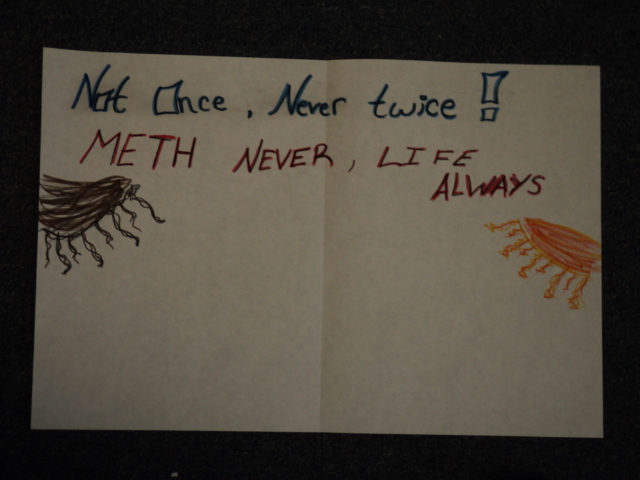 Not Once, Never twice!
METH NEVER, LIFE
ALWAYS